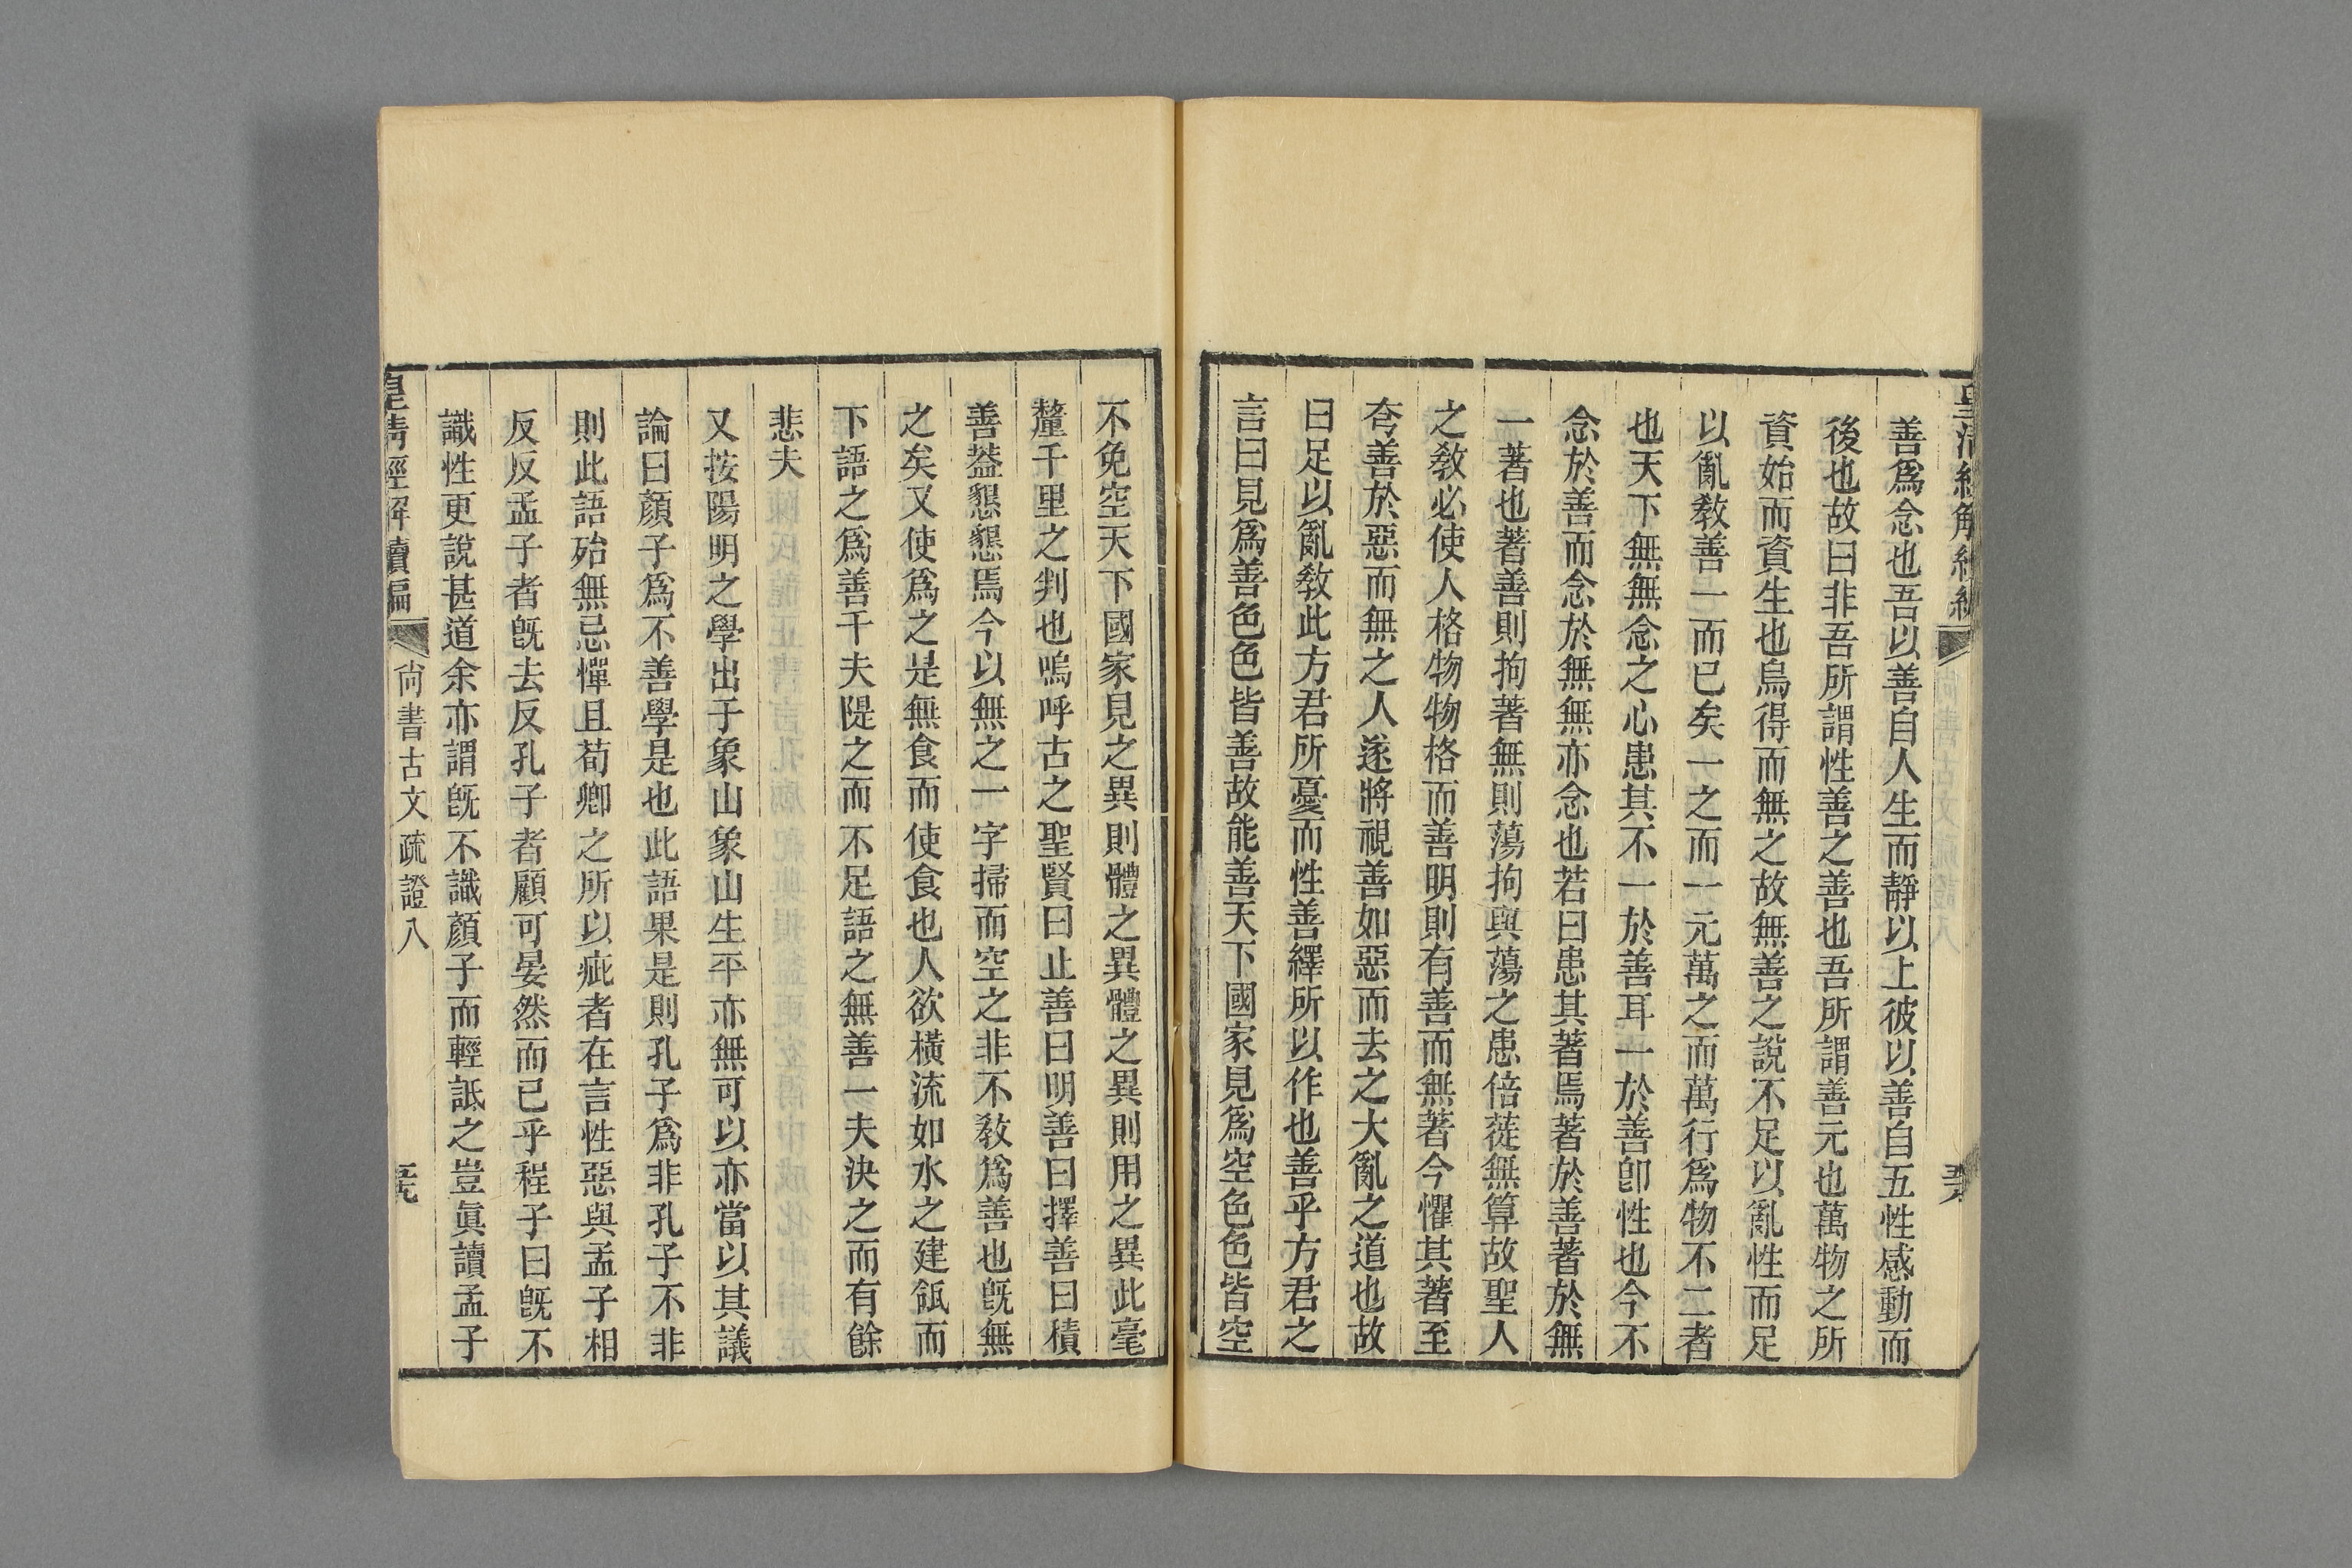 善爲念也吾以善自人生而靜以上彼以善自五性感動而
後也故曰非吾所謂性善之善也吾所謂善元也萬物之所
資始而資生也烏得而無之故無善之說不足以亂性而足
以亂敎善一而已矣一之而一元萬之而萬行爲物不二者
也天下無無念之心患其不一於善耳一於善卽性也今不
念於善而念於無無亦念也若曰患其著焉著於善著於無
一著也著善則拘著無則蕩拘與蕩之患倍蓰無算故聖人
之敎必使人格物物格而善明則有善而無著今懼其著至
夸善於惡而無之人遂將視善如惡而去之大亂之道也故
曰足以亂敎此方君所憂而性善繹所以作也善乎方君之
言曰見爲善色色皆善故能善天下國家見爲空色色皆空
不免空天下國家見之異則體之異體之異則用之異此毫
釐千里之判也嗚呼古之聖賢曰止善曰明善曰擇善曰積
善葢懇懇焉今以無之一字掃而空之非不敎爲善也旣無
之矣又使爲之是無食而使食也人欲橫流如水之建瓴而
下語之爲善千夫隄之而不足語之無善一夫決之而有餘
悲夫
又按陽明之學出于象山象山生平亦無可以亦當以其議
論曰顏子爲不善學是也此語果是則孔子爲非孔子不非
則此語殆無忌憚且荀卿之所以疵者在言性惡與孟子相
反反孟子者旣去反孔子者顧可晏然而已乎程子曰旣不
識性更說甚道余亦謂旣不識顏子而輕詆之豈眞讀孟子
皇淸經解續編
尙書古文疏證八